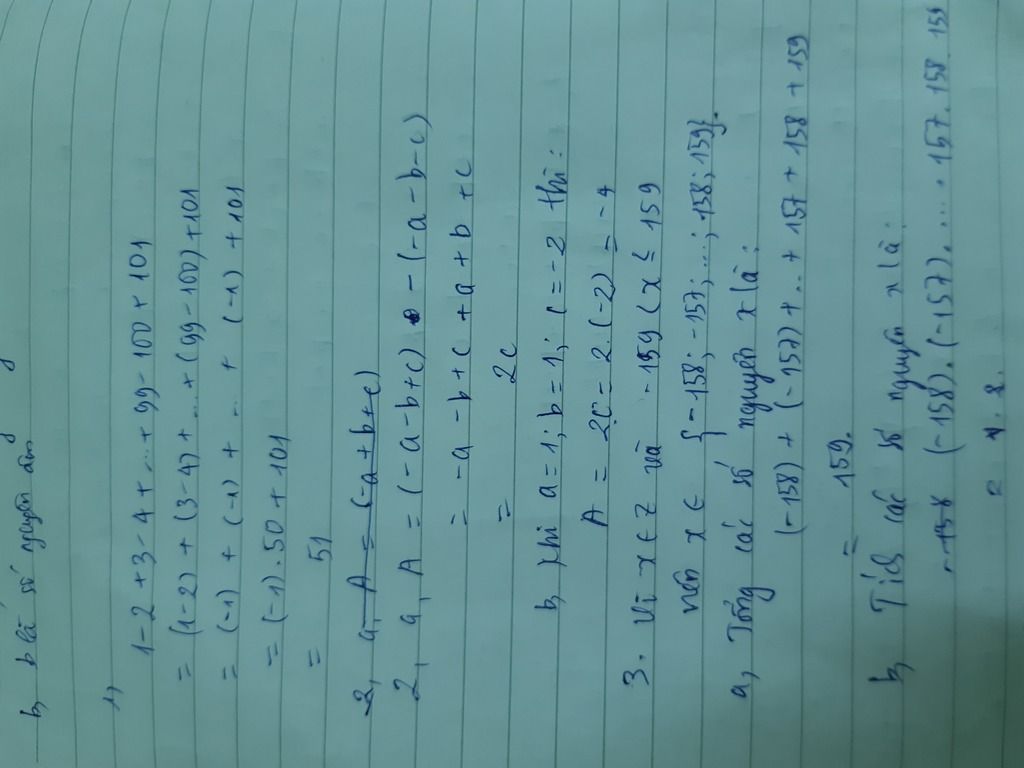 b, b là số nguyên âm
1,
1-2+3-4+...+99-100+101
= (1-2) + (3-4) + ... + (99-100) + 101
= (-1) + (-1) + ... + (-1) + 101
= (-1).50 + 101
= 51
2, a, A = (-a+b+c)
2, a, A = (-a-b+c) - (-a-b-c)
= -a-b+c+a+b+c
= 2c
b, khi a=1; b=1; c=-2 thì:
A = 2c = 2.(-2) = -4
3. Vì x∈Z và -159 < x ≤ 159
nên x ∈ {-158; -157; ...; 158; 159}.
a, Tổng các số nguyên x là:
(-158) + (-157) + ... + 157 + 158 + 159
= 159.
b, Tích các số nguyên x là:
(-158).(-157)..... 157.158.159